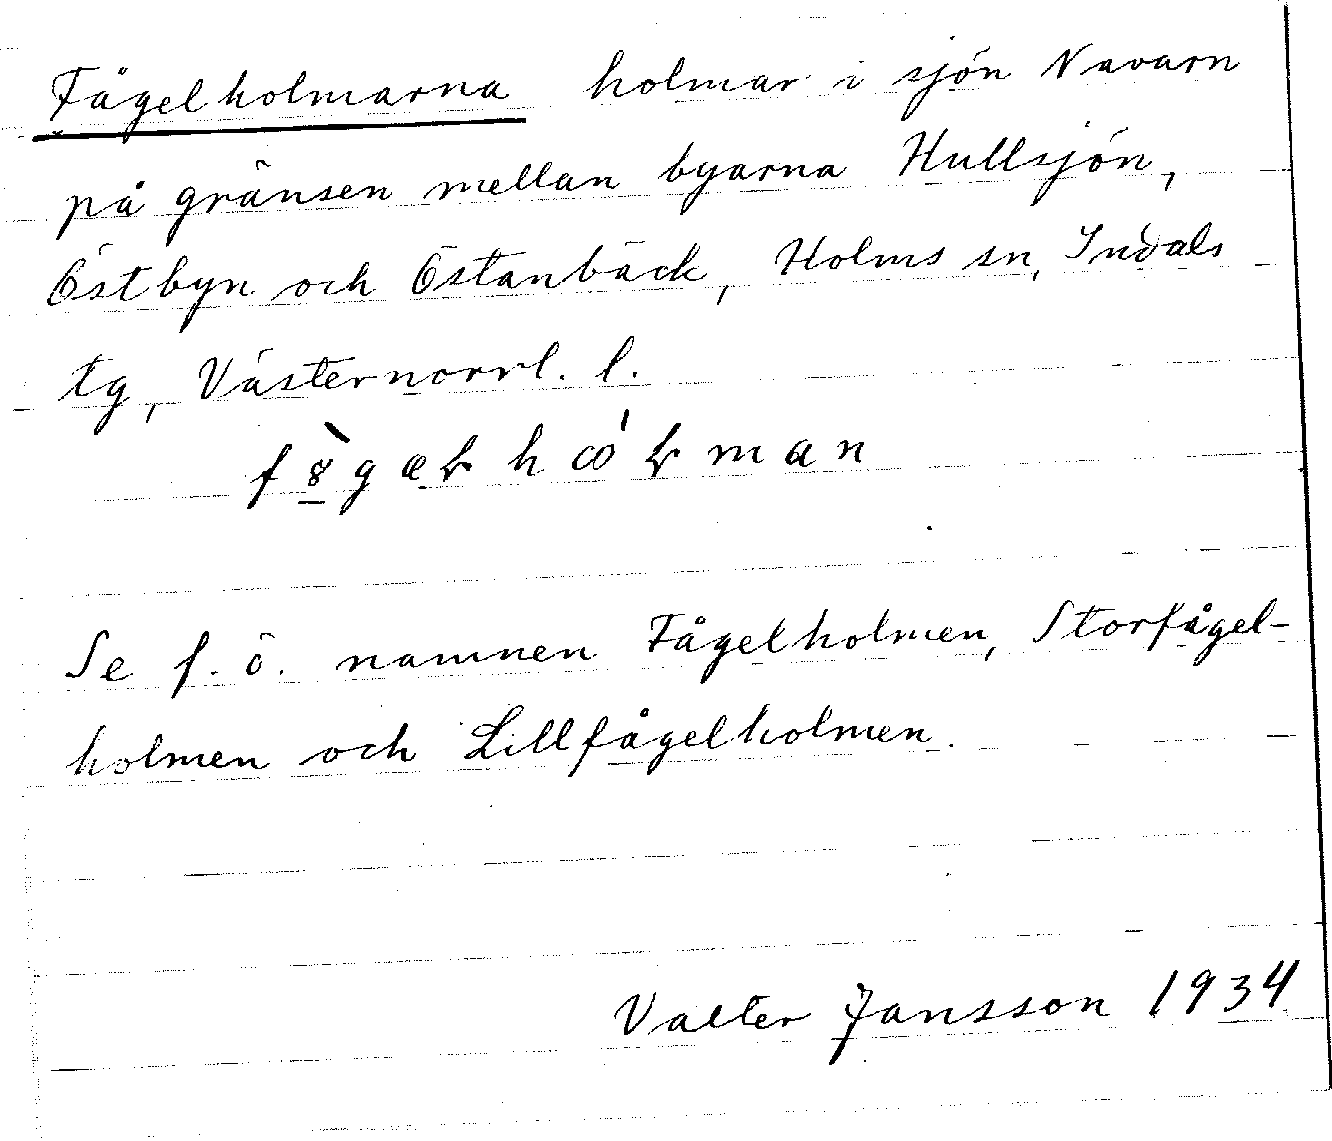 Fågelholmarna holmar i sjön Navarn
på gränsen mellan byarna Hullsjön,
Östbyn och Östanbäck, Holms sn, Indals
tg, Västernorrl. l.
Se f. ö. namnen Fågelholmen, Storfågel-
holmen och Lillfågelholmen.
Valter Jansson 1934